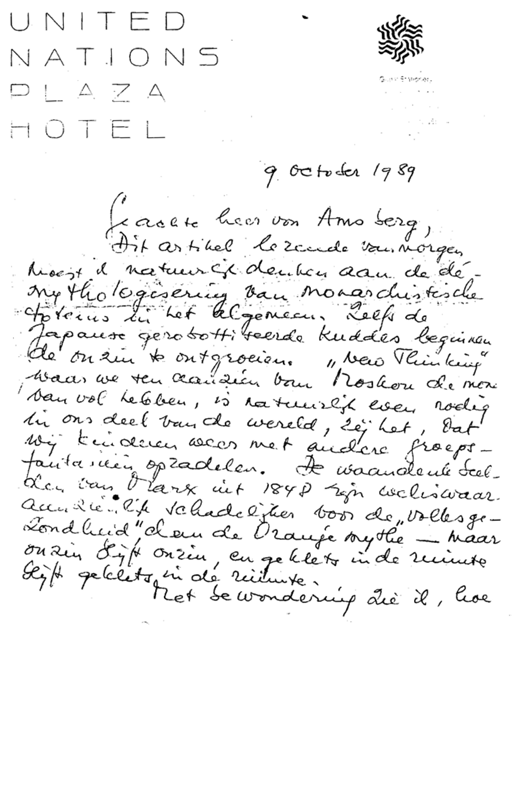 UNITED
NATIONS
PLAZA
HOTEL
9 october 1989
Geachte heer von Amsberg,
Dit artikel lezende vanmorgen
moest ik natuurlijk denken aan de de-
mythologisering van monarchistische
systeems in het algemeen. Zelfs de
Japanse gerobottiseerde kuddes beginnen
de onzin te ontgroeien. „New Thinking"
waar we ten aanzien van Moskou de mond
van vol hebben, is natuurlijk even nodig
in ons deel van de wereld, zij het, dat
wij kinderen weer met andere groeps-
fantasieën opzadelen. De waandenkbeel-
den van Marx uit 1848 zijn weliswaar
aanzienlijk schadelijker voor de „volksge-
zondheid" dan de Oranje mythe — maar
onzin blijft onzin, en geklets in de ruimte
blijft geklets in de ruimte.
Met bewondering zie ik, hoe